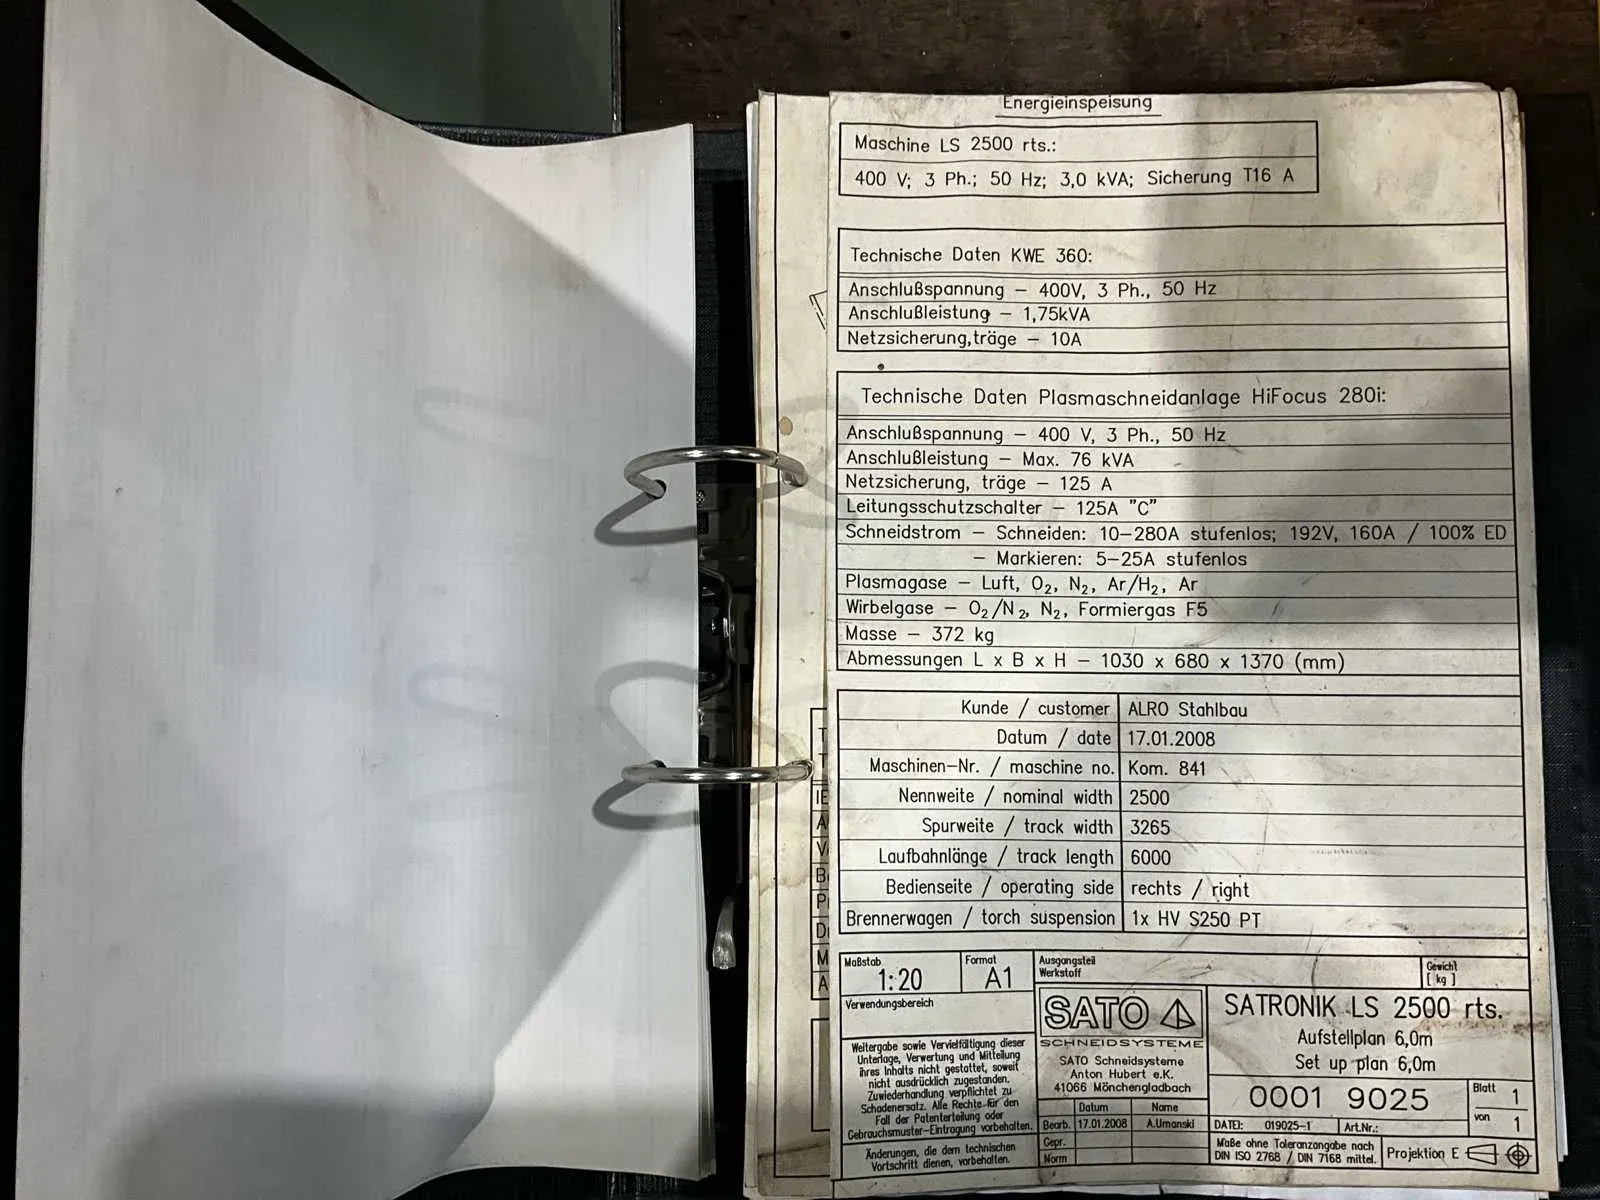 Energieinspeisung
Maschine LS 2500 rts.:
400 V; 3 Ph.; 50 Hz; 3,0 kVA; Sicherung T16 A
Technische Daten KWE 360:
Anschlußspannung – 400V, 3 Ph., 50 Hz
Anschlußleistung – 1,75kVA
Netzsicherung,träge – 10A
Technische Daten Plasmaschneidanlage HiFocus 280i:
Anschlußspannung – 400 V, 3 Ph., 50 Hz
Anschlußleistung – Max. 76 kVA
Netzsicherung, träge – 125 A
Leitungsschutzschalter – 125A "C"
Schneidstrom – Schneiden: 10–280A stufenlos; 192V, 160A / 100% ED
– Markieren: 5–25A stufenlos
Plasmagase – Luft, O₂, N₂, Ar/H₂, Ar
Wirbelgase – O₂/N₂, N₂, Formiergas F5
Masse – 372 kg
Abmessungen L x B x H – 1030 x 680 x 1370 (mm)
Kunde / customer ALRO Stahlbau
Datum / date 17.01.2008
Maschinen-Nr. / maschine no. Kom. 841
Nennweite / nominal width 2500
Spurweite / track width 3265
Laufbahnlänge / track length 6000
Bedienseite / operating side rechts / right
Brennerwagen / torch suspension 1x HV S250 PT
Maßstab
1:20
Format
A1
Verwendungsbereich
Weitergabe sowie Vervielfältigung dieser
Unterlage, Verwertung und Mitteilung
ihres Inhalts nicht gestattet, soweit
nicht ausdrücklich zugestanden.
Zuwiederhandlung verpflichtet zu
Schadenersatz. Alle Rechte für den
Fall der Patenterteilung oder
Gebrauchsmuster-Eintragung vorbehalten.
Änderungen, die dem technischen
Vortschritt dienen, vorbehalten.
Ausgangsteil
Werkstoff
Gewicht
[ kg ]
SATO
SCHNEIDSYSTEME
SATO Schneidsysteme
Anton Hubert e.K.
41066 Mönchengladbach
Datum Name
Bearb. 17.01.2008 A.Umanski
Gepr.
Norm
SATRONIK LS 2500 rts.
Aufstellplan 6,0m
Set up plan 6,0m
0001 9025
Blatt 1
von 1
DATEI: 019025-1 Art.Nr.:
Maße ohne Toleranzangabe nach
DIN ISO 2768 / DIN 7168 mittel.
Projektion E